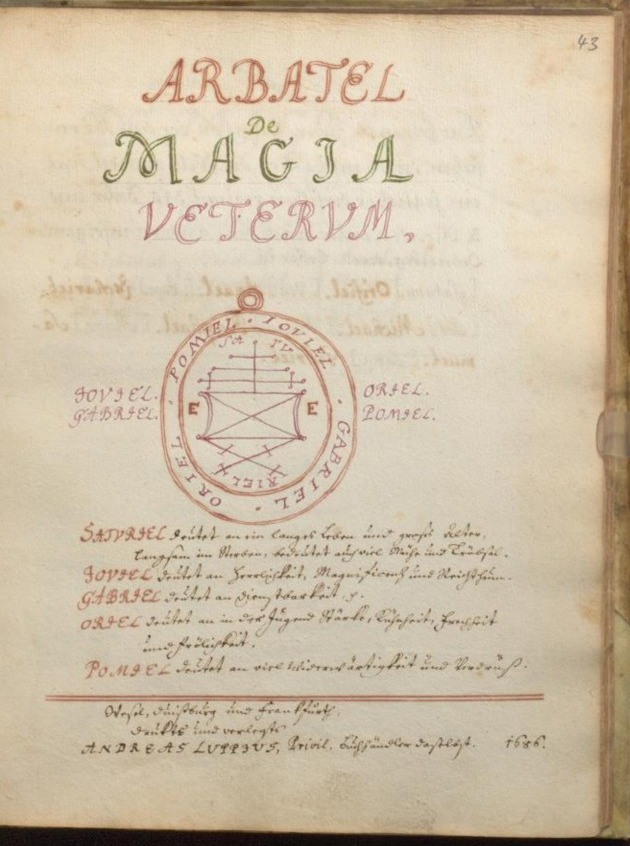 43
ARBATEL
De
MAGIA
VETERVM,
POMIEL · IOVIEL · GABRIEL · ORIEL ·
SA TV
JOVIEL.
GABRIEL.
E E
ORIEL.
POMIEL.
RIEL
SATVRIEL deutet an ein langes Leben und groß Alter,
langsam im Sterben, bedeutet auch viel Mühe und Trübsal.
JOVIEL deutet an Herrlichkeit, Magnificentz und Reichthum.
GABRIEL deutet an Dienstbarkeit
ORIEL deutet an in der Jugend Stärke, Kühnheit, Frechheit
und Frölichkeit.
POMIEL deutet an viel Widerwärtigkeit und Verdruß.
Wesel, Duißburg und Franckfurth,
druckts und verlegts
ANDREAS LUPPIUS, Privil. Buchhändler daselbst. 1686.